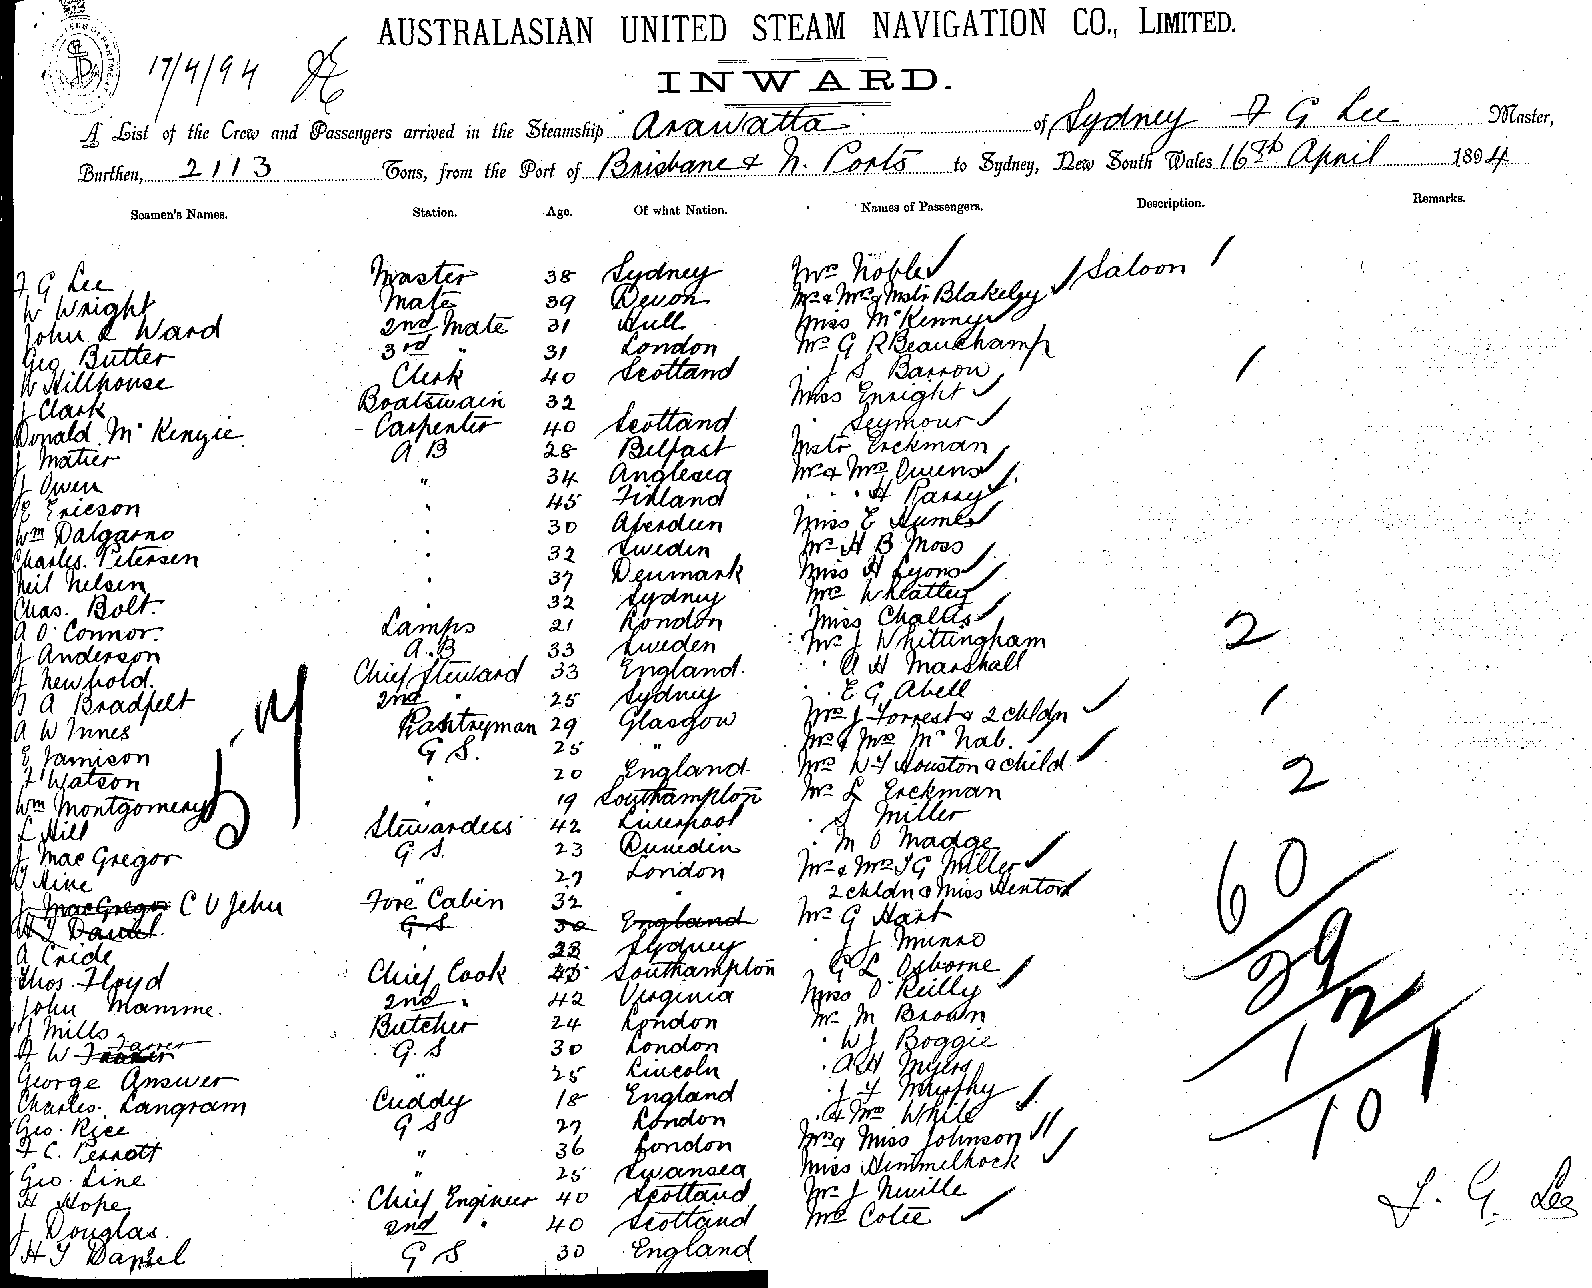 17/4/94
AUSTRALASIAN UNITED STEAM NAVIGATION CO., LIMITED.
INWARD.
A List of the Crew and Passengers arrived in the Steamship Arawatta of Sydney F G Lee Master,
Burthen, 2113 Tons, from the Port of Brisbane & N. Ports to Sydney, New South Wales 16th April 1894
Seamen's Names. Station. Age. Of what Nation. Names of Passengers. Description. Remarks.
F G Lee Master 38 Sydney Mrs Noble Saloon 1
W Wright Mate 39 Devon Mr & Mrs & Mstr Blakeley
John L Ward 2nd Mate 31 Hull Miss McKenny
Geo Butter 3rd " 31 London Mr G R Beauchamp
W Hillhouse Clerk 40 Scotland " J S Barron 1
J Clark Boatswain 32 Miss Enright
Donald McKenzie Carpenter 40 Scotland " Seymour
J Matier A B 28 Belfast Mstr Erckman
J Owen " 34 Anglesea Mr & Mrs Owens
E Ericson " 45 Finland " " " H Parry
Wm Dalgarno " 30 Aberdeen Miss E Hume
Charles Petersen " 32 Sweden Mr H B Moss
Neil Nelsen " 37 Denmark Miss H Lyons
Chas. Bolt " 32 Sydney Mrs Wheatley
A O'Connor Lamps 21 London Miss Challis 2
J Anderson A.B 33 Sweden Mr J Whittingham
J Newbold Chief Steward 33 England " A H Marshall
A Bradfelt 2nd " 25 Sydney " E G Abell
A W Innes Pantryman 29 Glasgow Mrs J Forrest & 2 chldn 1
E Jamison G S. 25 " Mr & Mrs McNab.
F Watson " 20 England Mrs W F Houston & child 2
Wm Montgomery " 19 Southampton Mr L Erckman
L Hill Stewardess 42 Liverpool " S Miller
J MacGregor G S. 23 Dunedin " M O Madge
T Hine " 27 London Mr & Mrs T G Miller
J MacGregor C V John Fore Cabin 32 " 2 chldn & Miss Henton
H J Daniel G S 30 England Mr G Hart
A Cride " 23 Sydney " J J Munro
Thos. Floyd Chief Cook 45 Southampton " G L Osborne
John Mamme 2nd " 42 Virginia Miss O'Reilly
J Mills Butcher 24 London Mr M Brown
F W Farrer G. S 30 London " W J Boggie
George Answer " 25 Lincoln " A H Myers
Charles Langram Cuddy 18 England " J F Murphy
Geo. Rice G S 27 London " & Mrs White
F C. Perrott " 36 London Mrs & Miss Johnson
Geo. Line " 25 Swansea Miss Himmelhock
H Hope Chief Engineer 40 Scotland Mr J Neville
J Douglas 2nd " 40 Scotland Mrs Cotie
H J Daniel G S 30 England
60
39
12
101
F. G. Lee